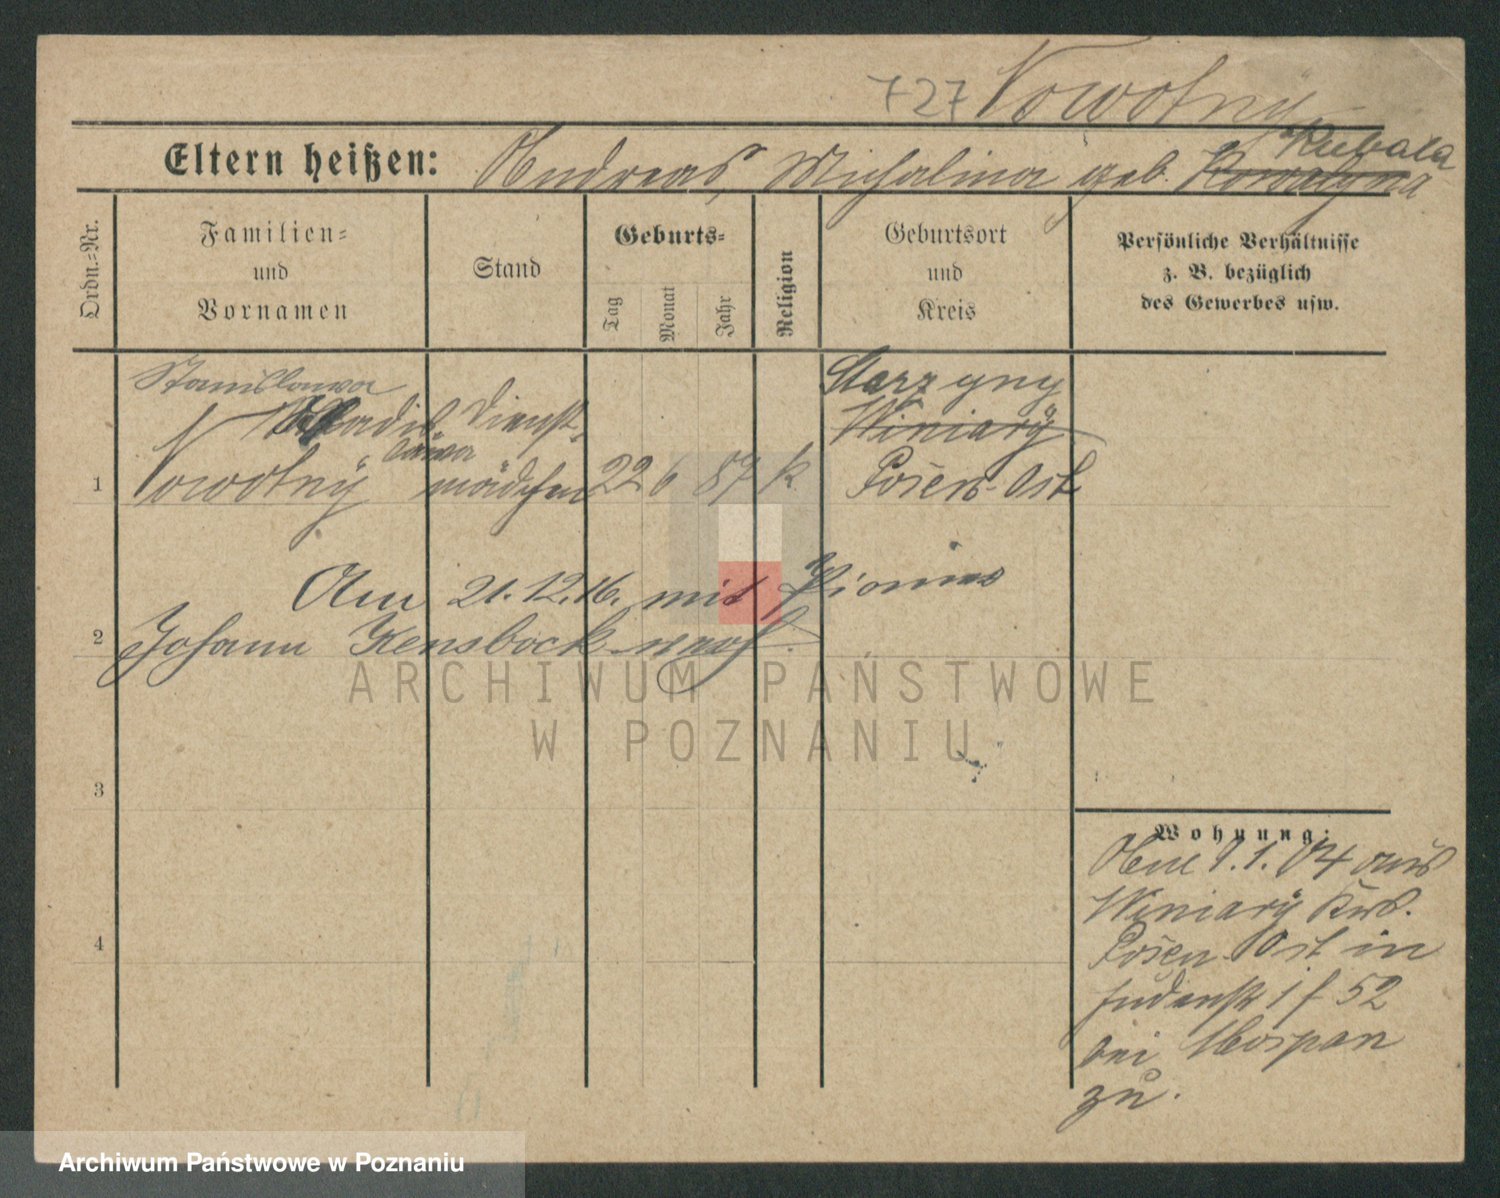 727 Nowotny
Eltern heißen: Andreas, Michalina geb. Kowalyna Rubala
Ordn.-Nr.
Familien-
und
Vornamen
Stand
Geburts-
Tag
Monat
Jahr
Religion
Geburtsort
und
Kreis
Persönliche Verhältnisse
z. B. bezüglich
des Gewerbes usw.
Stanislawa
Wladis-
lawa
Dienst-
1 Nowotny mädchen 22 6 87 k.
Starzyny
Winiary
Posen-Ost
Am 21.12.16. mit Pionier
2 Johann Kensbock verh.
3
4
Wohnung:
1.1.04 aus
Winiary Krs.
Posen-Ost in
Judenstr 1 f 52
bei
zu.
ARCHIWUM PAŃSTWOWE
W POZNANIU
Archiwum Państwowe w Poznaniu